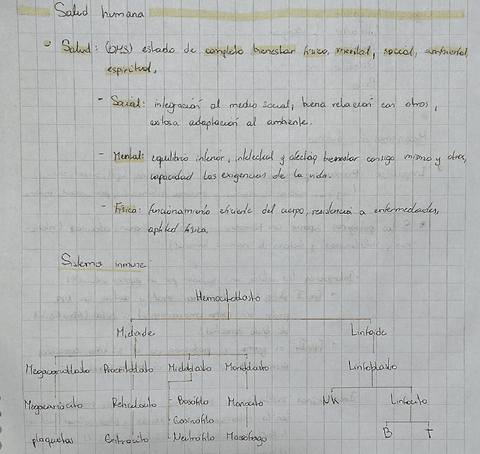 Salud humana
Salud: (OMS) estado de completo bienestar físico, mental, social, ambiental,
espiritual.
- Social: integración al medio social, buena relación con otros,
exitosa adaptación al ambiente.
- Mental: equilibrio interior, intelectual y afectivo, bienestar consigo mismo y otros,
capacidad las exigencias de la vida.
- Física: funcionamiento eficiente del cuerpo, resistencia a enfermedades,
aptitud física.
Sistema inmune:
Hemocitoblasto
Mieloide Linfoide
Megacarioblasto Proeritroblasto Mieloblasto Monoblasto Linfoblasto
Megacariocito Reticulocito Basófilo Monocito NK Linfocito
- Eosinófilo
plaquetas Eritrocito - Neutrófilo Macrófago B T